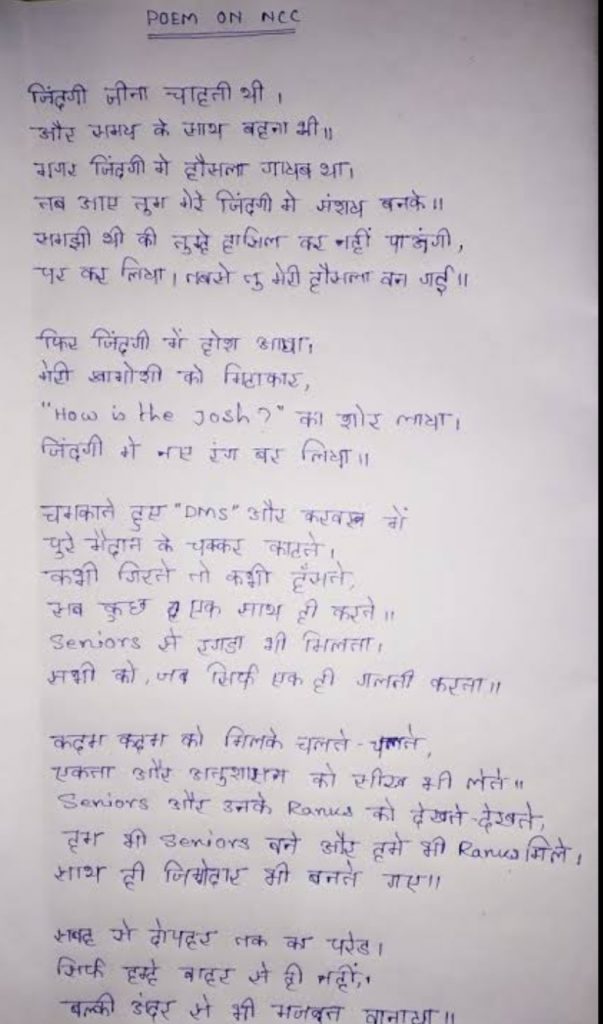 POEM ON NCC
जिंदगी जीना चाहती थी ।
और समय के साथ बहना भी॥
मगर जिंदगी मे हौसला गायब था।
तब आए तुम मेरे जिंदगी मे संशय बनके॥
समझी थी की तुम्हे हासिल कर नहीं पाऊंगी,
पर कर लिया। तबसे तु मेरी हौसला बन गई॥
फिर जिंदगी में होश आया।
मेरी खामोशी को मिटाकार,
"How is the Josh?" का शोर लाया।
जिंदगी मे नए रंग बर लिया॥
चमकाते हुए "DMS" और में
पुरे मैदान के चक्कर काटते।
कभी गिरते तो कभी हँसते,
सब कुछ एक साथ ही करते॥
Seniors से रगडा भी मिलता।
सभी को, जब सिर्फ एक ही गलती करता॥
कदम कदम को मिलके चलते-चलते,
एकता और अनुशासन को सीख भी लेते॥
Seniors और उनके Ranks को देखते-देखते,
हम भी Seniors बने और हमे भी Ranks मिले।
साथ ही जिम्मेदार भी बनते गए॥
सुबह से दोपहर तक का परेड।
सिर्फ हम्हे बाहर से ही नहीं,
बल्की अंदर से भी मजबूत बानाया॥